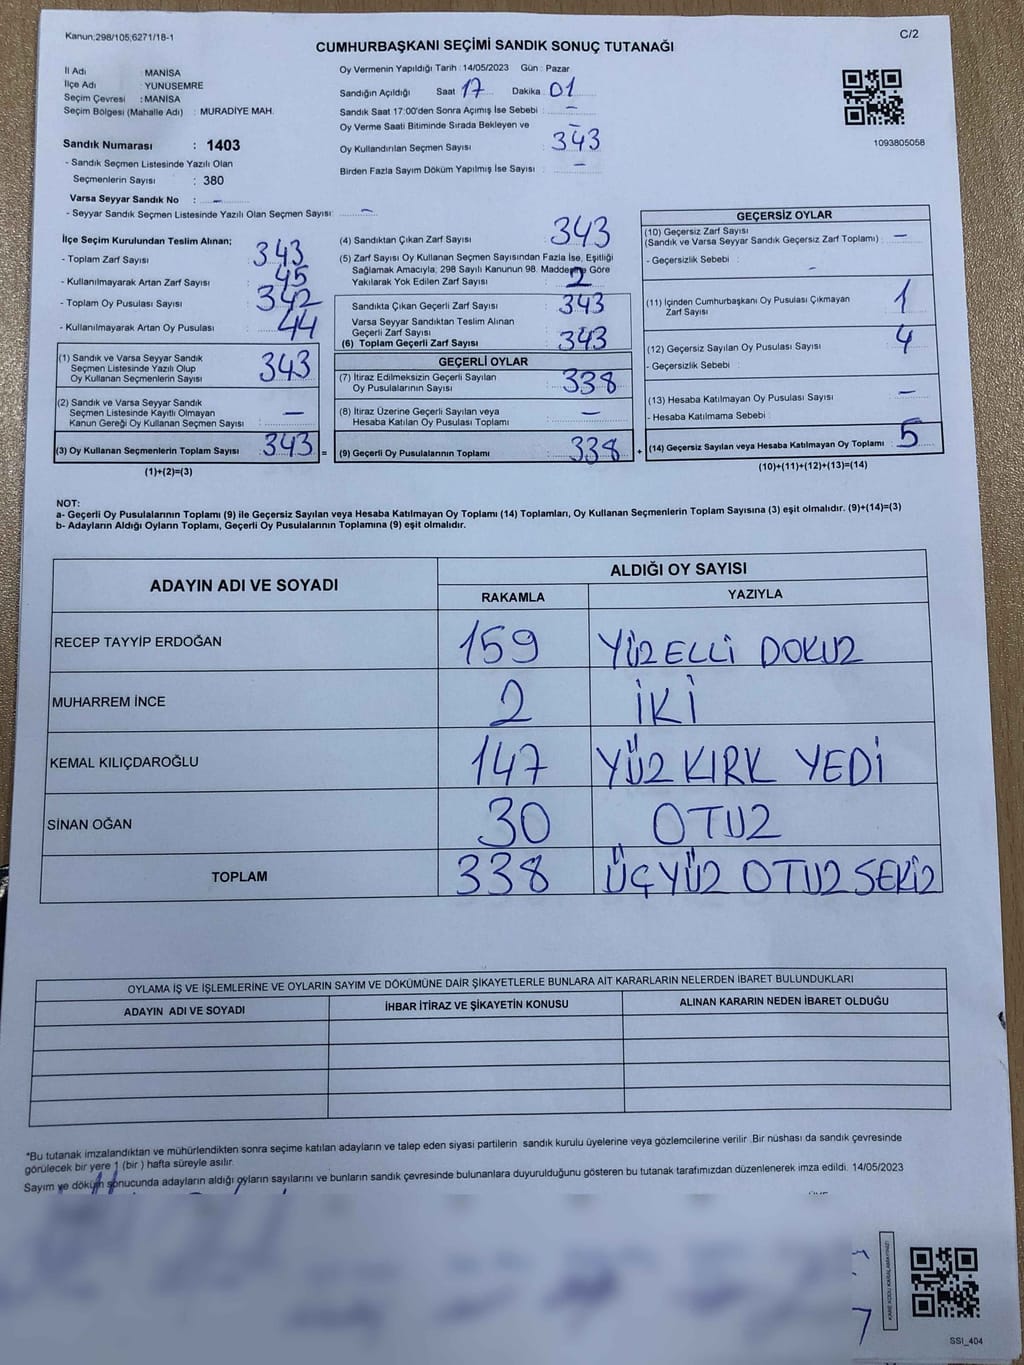 Kanun;298/105;6271/18-1
C/2
CUMHURBAŞKANI SEÇİMİ SANDIK SONUÇ TUTANAĞI
İl Adı : MANİSA
İlçe Adı : YUNUSEMRE
Seçim Çevresi : MANİSA
Seçim Bölgesi (Mahalle Adı) : MURADİYE MAH.
Sandık Numarası : 1403
- Sandık Seçmen Listesinde Yazılı Olan
Seçmenlerin Sayısı : 380
Varsa Seyyar Sandık No : -
- Seyyar Sandık Seçmen Listesinde Yazılı Olan Seçmen Sayısı: -
Oy Vermenin Yapıldığı Tarih : 14/05/2023 Gün : Pazar
Sandığın Açıldığı Saat 17 Dakika 01
Sandık Saat 17:00'den Sonra Açımış İse Sebebi : -
Oy Verme Saati Bitiminde Sırada Bekleyen ve -
Oy Kullandırılan Seçmen Sayısı : 343
Birden Fazla Sayım Döküm Yapılmış İse Sayısı : -
1093805058
İlçe Seçim Kurulundan Teslim Alınan;
- Toplam Zarf Sayısı : 343
- Kullanılmayarak Artan Zarf Sayısı : 45
- Toplam Oy Pusulası Sayısı : 342
- Kullanılmayarak Artan Oy Pusulası : 44
(1) Sandık ve Varsa Seyyar Sandık
Seçmen Listesinde Yazılı Olup
Oy Kullanan Seçmenlerin Sayısı : 343
(2) Sandık ve Varsa Seyyar Sandık
Seçmen Listesinde Kayıtlı Olmayan
Kanun Gereği Oy Kullanan Seçmen Sayısı : -
(3) Oy Kullanan Seçmenlerin Toplam Sayısı : 343 =
(1)+(2)=(3)
(4) Sandıktan Çıkan Zarf Sayısı : 343
(5) Zarf Sayısı Oy Kullanan Seçmen Sayısından Fazla İse, Eşitliği
Sağlamak Amacıyla, 298 Sayılı Kanunun 98. Maddesine Göre
Yakılarak Yok Edilen Zarf Sayısı : 2
Sandıkta Çıkan Geçerli Zarf Sayısı : 343
Varsa Seyyar Sandıktan Teslim Alınan
Geçerli Zarf Sayısı :
(6) Toplam Geçerli Zarf Sayısı : 343
GEÇERLİ OYLAR
(7) İtiraz Edilmeksizin Geçerli Sayılan
Oy Pusulalarının Sayısı : 338
(8) İtiraz Üzerine Geçerli Sayılan veya
Hesaba Katılan Oy Pusulaları Toplamı : -
(9) Geçerli Oy Pusulalarının Toplamı : 338 +
GEÇERSİZ OYLAR
(10) Geçersiz Zarf Sayısı
(Sandık ve Varsa Seyyar Sandık Geçersiz Zarf Toplamı) : -
- Geçersizlik Sebebi :
-
(11) İçinden Cumhurbaşkanı Oy Pusulası Çıkmayan
Zarf Sayısı : 1
(12) Geçersiz Sayılan Oy Pusulası Sayısı : 4
- Geçersizlik Sebebi :
(13) Hesaba Katılmayan Oy Pusulası Sayısı : -
- Hesaba Katılmama Sebebi :
(14) Geçersiz Sayılan veya Hesaba Katılmayan Oy Toplamı : 5
(10)+(11)+(12)+(13)=(14)
NOT:
a- Geçerli Oy Pusulalarının Toplamı (9) ile Geçersiz Sayılan veya Hesaba Katılmayan Oy Toplamı (14) Toplamları, Oy Kullanan Seçmenlerin Toplam Sayısına (3) eşit olmalıdır. (9)+(14)=(3)
b- Adayların Aldığı Oyların Toplamı, Geçerli Oy Pusulalarının Toplamına (9) eşit olmalıdır.
ADAYIN ADI VE SOYADI
ALDIĞI OY SAYISI
RAKAMLA YAZIYLA
RECEP TAYYİP ERDOĞAN 159 YÜZ ELLİ DOKUZ
MUHARREM İNCE 2 İKİ
KEMAL KILIÇDAROĞLU 147 YÜZ KIRK YEDİ
SİNAN OĞAN 30 OTUZ
TOPLAM 338 ÜÇ YÜZ OTUZ SEKİZ
OYLAMA İŞ VE İŞLEMLERİNE VE OYLARIN SAYIM VE DÖKÜMÜNE DAİR ŞİKAYETLERLE BUNLARA AİT KARARLARIN NELERDEN İBARET BULUNDUKLARI
ADAYIN ADI VE SOYADI İHBAR İTİRAZ VE ŞİKAYETİN KONUSU ALINAN KARARIN NEDEN İBARET OLDUĞU
*Bu tutanak imzalandıktan ve mühürlendikten sonra seçime katılan adayların ve talep eden siyasi partilerin sandık kurulu üyelerine veya gözlemcilerine verilir .Bir nüshası da sandık çevresinde
görülecek bir yere 1 (bir ) hafta süreyle asılır.
Sayım ve döküm sonucunda adayların aldığı oyların sayılarını ve bunların sandık çevresinde bulunanlara duyurulduğunu gösteren bu tutanak tarafımızdan düzenlenerek imza edildi. 14/05/2023
KARE KODU KARALAMAYINIZ!
SSI_404